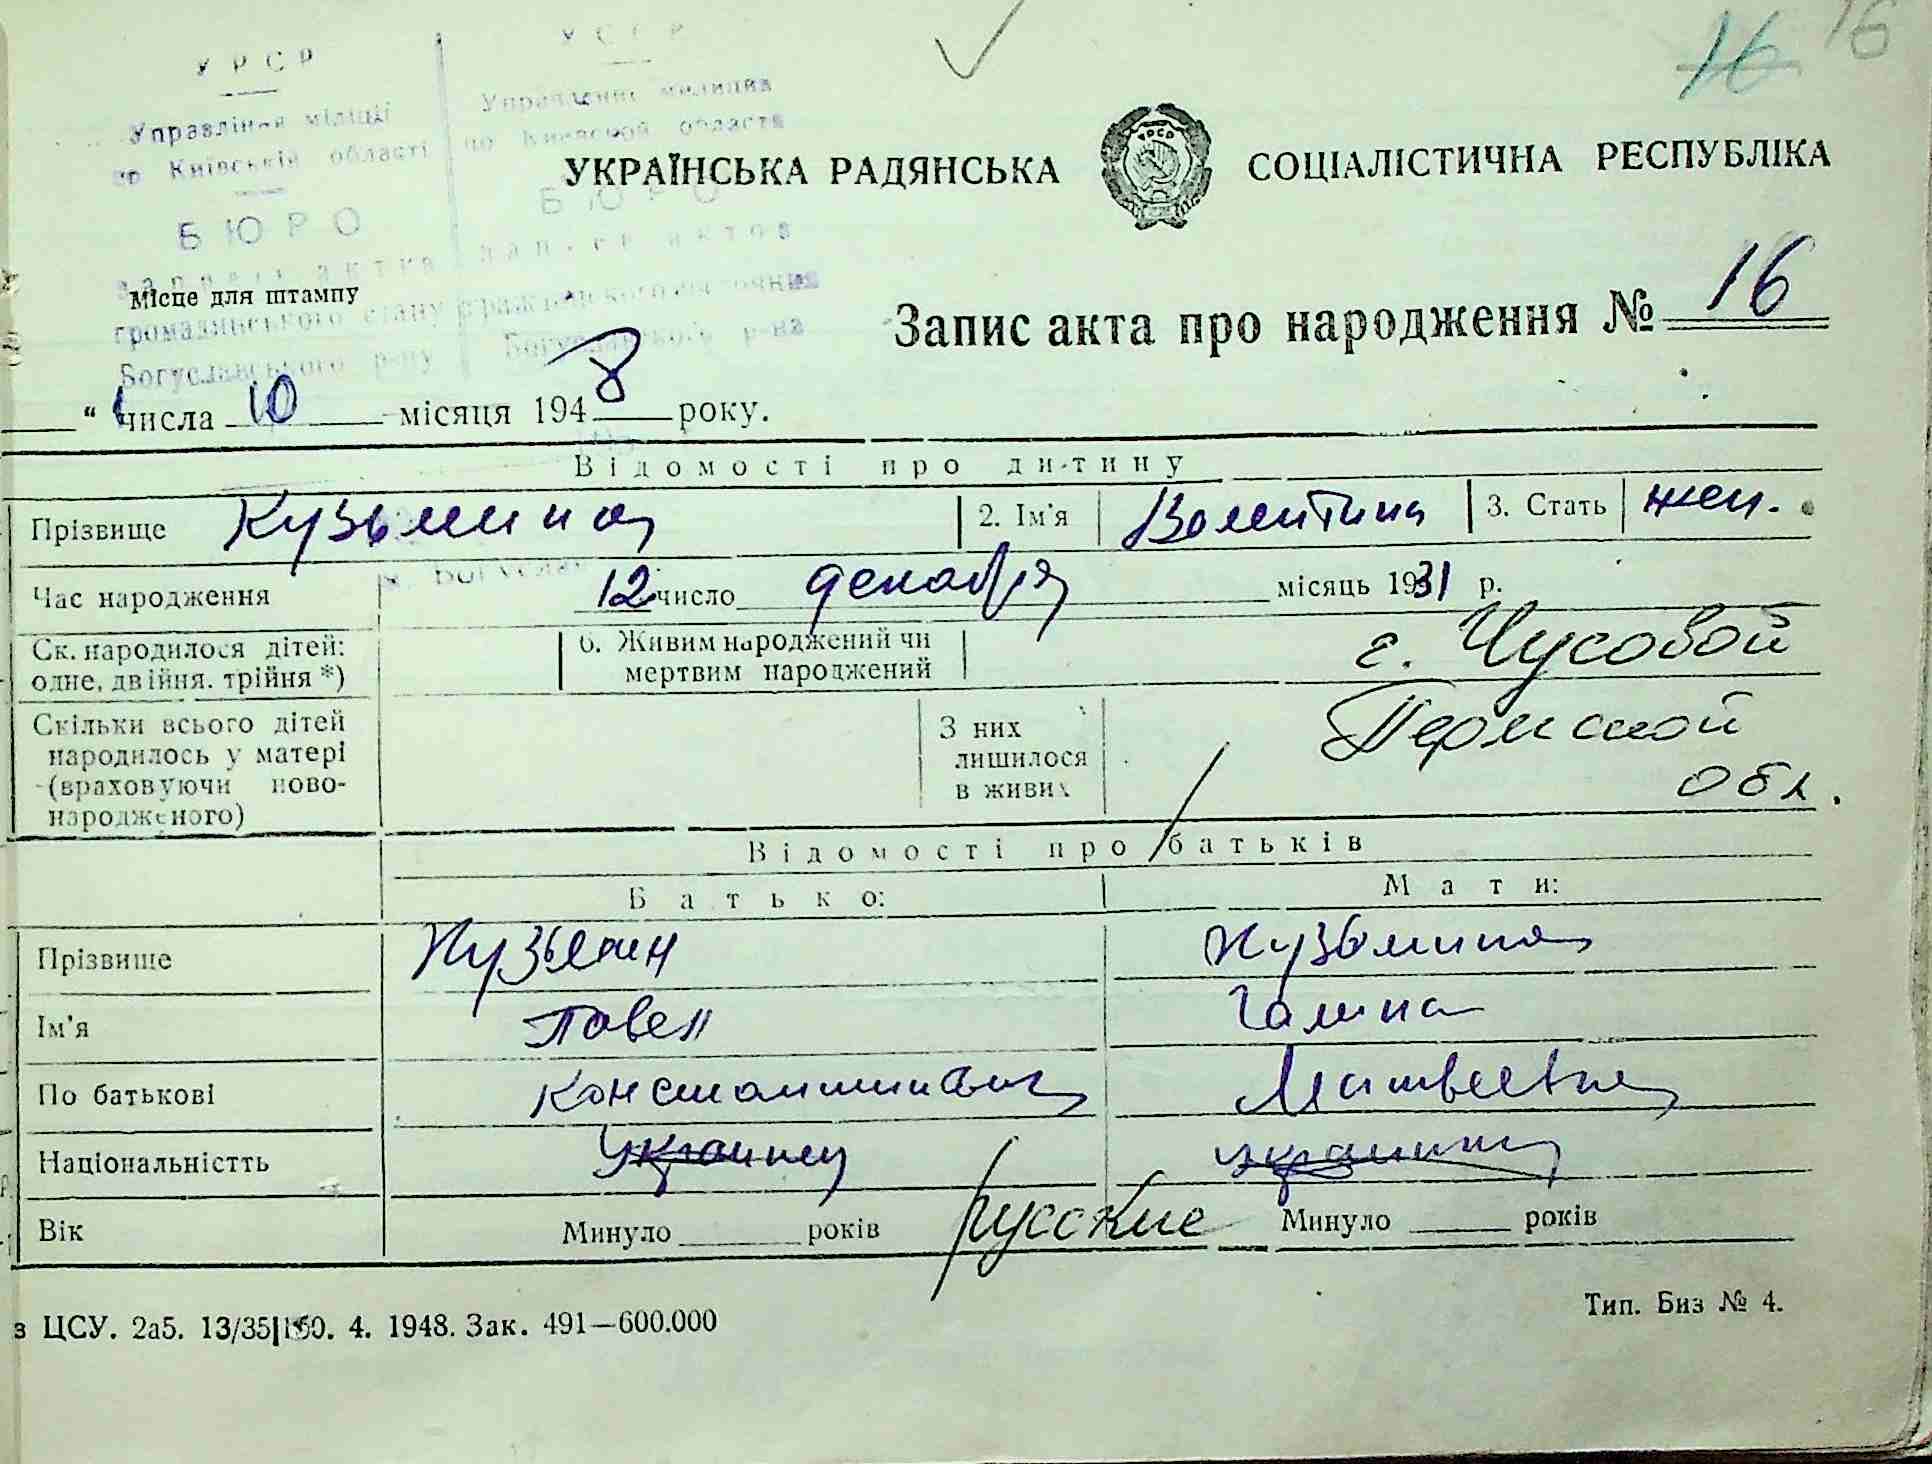 16 16
У Р С Р
Управління міліції
по Київській області
Б Ю Р О
запис акта
громадянського стану
Богуславського р-ну
У С С Р
Управление милиции
по Киевской области
Б Ю Р О
гражданского
Богуславского р-на
УКРАЇНСЬКА РАДЯНСЬКА СОЦІАЛІСТИЧНА РЕСПУБЛІКА
Місце для штампу
Запис акта про народження № 16
“ числа 10 місяця 1948 року.
Відомості про дитину
Прізвище Кузьмина 2. Ім'я Валентина 3. Стать жен.
Час народження 12 число декабря місяць 1931 р.
Ск. народилося дітей: 6. Живим народжений чи г. Чусовой
одне, двійня, трійня *) мертвим народжений
Скільки всього дітей З них Пермской
народилось у матері лишилося обл.
(враховуючи ново- в живих
народженого)
Відомості про батьків
Батько: Мати:
Прізвище Кузьмин Кузьмина
Ім'я Павел Галина
По батькові Константинович Матвеевна
Національністть Украинец украинка
русские
Вік Минуло років Минуло років
з ЦСУ. 2а5. 13/35 4. 1948. Зак. 491—600.000
Тип. Биз № 4.